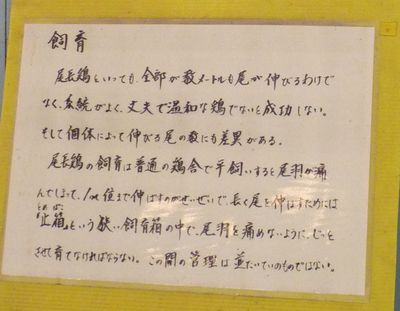 飼育
尾長鶏といっても、全部が数メートルも尾が伸びるわけで
なく、系統がよく、丈夫で温和な鶏でないと成功しない。
そして個体によって伸びる尾の数にも差異がある。
尾長鶏の飼育は普通の鶏舎で平飼いすると尾羽が痛
んでしまって、1m位まで伸ばすのがせいぜいで、長く尾を伸ばすためには
とめばこ
「止箱」という狭い飼育箱の中で、尾羽を痛めないように、じっと
させて育てなければならない。この間の管理は並たいていのものではない。